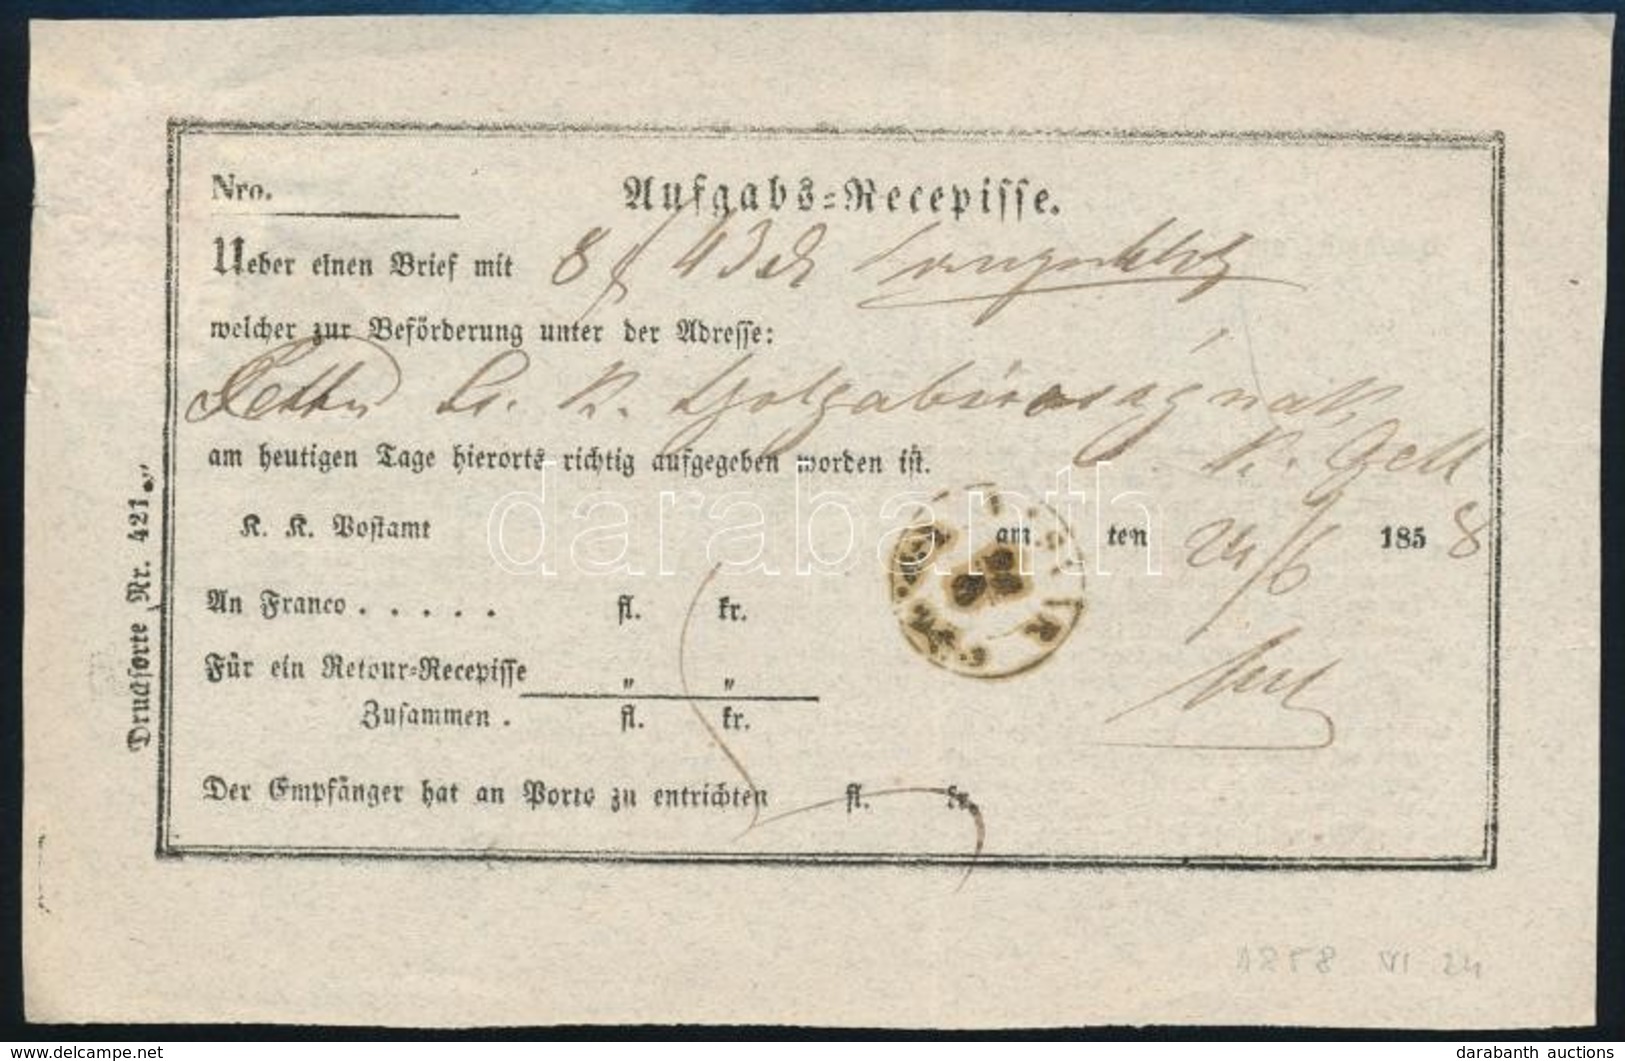 Nro.
Aufgabs=Recepisse.
Ueber einen Brief mit 8 f 43 xr
welcher zur Beförderung unter der Adresse:
K. Szolgabiróságnak
am heutigen Tage hierorts richtig aufgegeben worden ist.
K. K. Postamt am ten 24/6 1858
An Franco . . . . . fl. kr.
Für ein Retour=Recepisse " "
Zusammen . fl. kr.
Der Empfänger hat an Porto zu entrichten fl. kr.
Drucksorte Nr. 421.
1858 VI 24
darabanth
www.delcampe.net
darabanth auctions